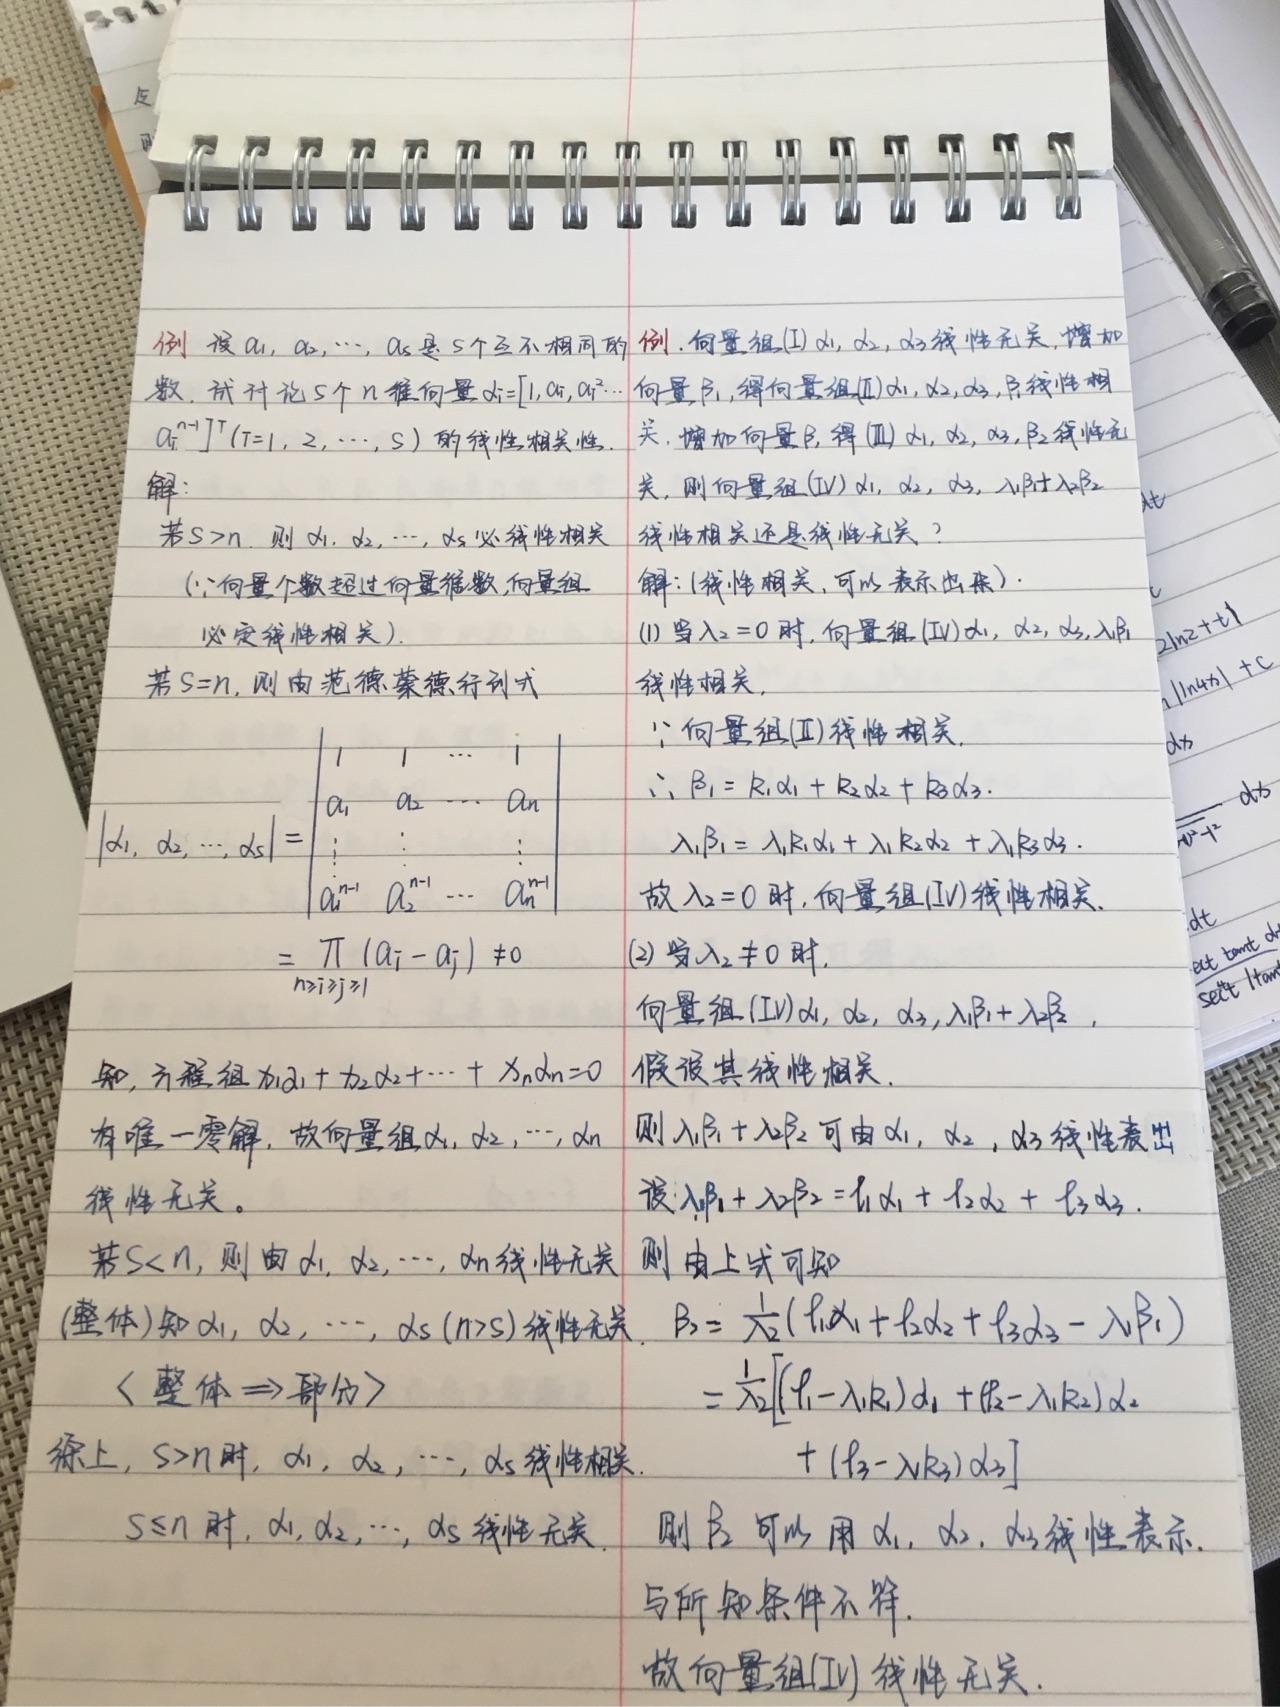 例 设a₁, a₂, ⋯, aₛ是s个互不相同的
数, 试讨论s个n维向量αᵢ=[1, aᵢ, aᵢ²⋯
aᵢⁿ⁻¹]ᵀ(T=1, 2, ⋯, s) 的线性相关性.
解:
若s>n, 则α₁, α₂, ⋯, αₛ必线性相关
(∵向量个数超过向量维数, 向量组
必定线性相关).
若S=n, 则由范德蒙德行列式
|α₁, α₂, ⋯, αₛ| = | 1 1 ⋯ 1
a₁ a₂ ⋯ aₙ
⋮ ⋮ ⋮
a₁ⁿ⁻¹ a₂ⁿ⁻¹ ⋯ aₙⁿ⁻¹ |
= Π (aᵢ - aⱼ) ≠0
n≥i≥j≥1
知, 方程组x₁α₁+x₂α₂+⋯+xₙαₙ=0
有唯一零解, 故向量组α₁, α₂, ⋯, αₙ
线性无关。
若S<n, 则由α₁, α₂, ⋯, αₙ线性无关
(整体)知α₁, α₂, ⋯, αₛ(n>s)线性无关.
<整体⇒部分>
综上, s>n时, α₁, α₂, ⋯, αₛ线性相关.
s≤n时, α₁, α₂, ⋯, αₛ线性无关.
例. 向量组(I) α₁, α₂, α₃线性无关, 增加
向量β₁, 得向量组(II) α₁, α₂, α₃, β₁线性相
关, 增加向量β, 得(III) α₁, α₂, α₃, β₂线性无
关, 则向量组(IV) α₁, α₂, α₃, λ₁β₁+λ₂β₂
线性相关还是线性无关?
解: (线性相关, 可以表示出来).
(1) 当λ₂=0时, 向量组(IV) α₁, α₂, α₃, λ₁β₁
线性相关,
∵向量组(II)线性相关.
∴β₁=k₁α₁+k₂α₂+k₃α₃.
λ₁β₁=λ₁k₁α₁+λ₁k₂α₂+λ₁k₃α₃.
故λ₂=0时, 向量组(IV)线性相关.
(2) 当λ₂≠0时,
向量组(IV) α₁, α₂, α₃, λ₁β₁+λ₂β₂,
假设其线性相关.
则λ₁β₁+λ₂β₂可由α₁, α₂, α₃线性表出
设:λ₁β₁+λ₂β₂=l₁α₁+l₂α₂+l₃α₃.
则由上式可知
β₂=1/λ₂(l₁α₁+l₂α₂+l₃α₃-λ₁β₁)
=1/λ₂[(l₁-λ₁k₁)α₁+(l₂-λ₁k₂)α₂
+(l₃-λ₁k₃)α₃]
则β₂可以用α₁, α₂, α₃线性表示.
与所知条件不符.
故向量组(IV)线性无关.
dt
2ln2+t|
|ln4x|+c
dx
dx
dt
sect tant dt